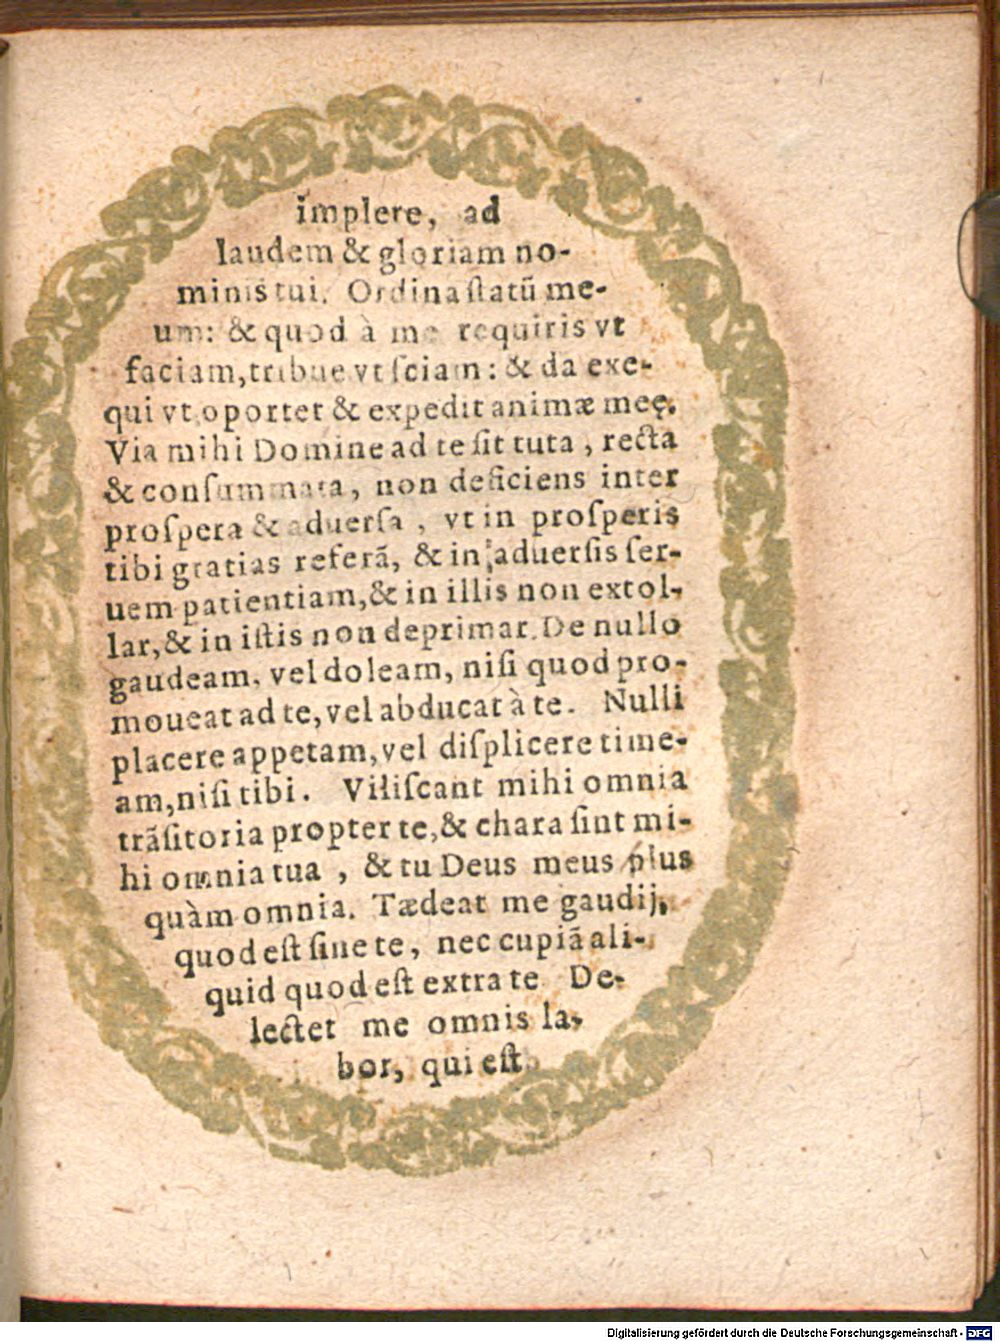 implere, ad
laudem & gloriam no-
minis tui. Ordina ſtatũ me-
um: & quod à me requiris vt
faciam, tribue vt ſciam: & da exe-
qui vt oportet & expedit animæ meę.
Via mihi Domine ad te ſit tuta, recta
& conſummata, non deficiens inter
proſpera & aduerſa, vt in proſperis
tibi gratias referã, & in aduerſis ſer-
uem patientiam, & in illis non extol-
lar, & in iſtis non deprimar. De nullo
gaudeam, vel doleam, niſi quod pro-
moueat ad te, vel abducat à te. Nulli
placere appetam, vel diſplicere time-
am, niſi tibi. Viliſcant mihi omnia
trãſitoria propter te, & chara ſint mi-
hi omnia tua, & tu Deus meus plus
quàm omnia. Tædeat me gaudij,
quod eſt ſine te, nec cupiã ali-
quid quod eſt extra te De-
lectet me omnis la-
bor, qui eſt
Digitalisierung gefördert durch die Deutsche Forschungsgemeinschaft - DFG